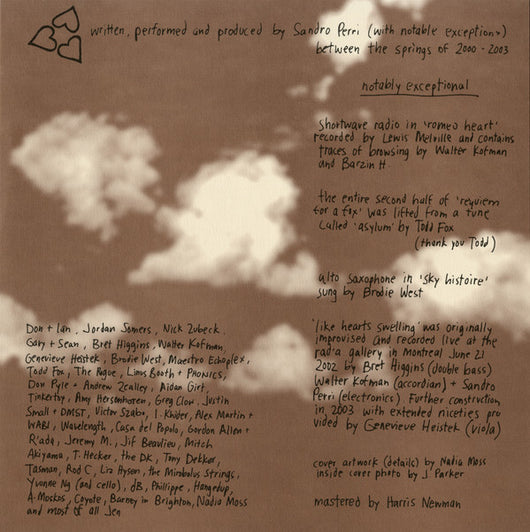 written, performed and produced by Sandro Perri (with notable exceptions)
between the springs of 2000 - 2003
notably exceptional
shortwave radio in 'romeo heart'
recorded by Lewis Melville and contains
traces of browsing by Walter Kofman
and Barzin H.
the entire second half of 'requiem
for a fox' was lifted from a tune
called 'asylum' by Todd Fox
(thank you Todd)
alto saxophone in 'sky histoire'
sung by Brodie West
'like hearts swelling' was originally
improvised and recorded live at the
rad'a gallery in Montreal June 21
2002 by Bret Higgins (double bass)
Walter Kofman (accordian) + Sandro
Perri (electronics). Further construction
in 2003 with extended niceties pro
vided by Genevieve Heistek (viola)
cover artwork (details) by Nadia Moss
inside cover photo by J. Parker
mastered by Harris Newman
Don + Ian, Jordan Somers, Nick Zubeck,
Gary + Sean, Bret Higgins, Walter Kofman,
Genevieve Heistek, Brodie West, Maestro Echoplex,
Todd Fox, The Rogue, Lions Booth + PHONICS,
Don Pyle + Andrew Zealley, Aidan Girt,
Tinkertoy, Amy Hersenhoren, Greg Clow, Justin
Small + DMST, Victor Szabo, I. Khider, Alex Martin +
WABI, Wavelength, Casa del Popolo, Gordon Allen +
R'ada, Jeremy M., Jif Beaulieu, Mitch
Akiyama, T. Hecker, the DK, Tony Dekker,
Tasman, Rod C, Liza Hyson, the Mirabolus Strings,
Yvonne Ng (and cello), dB, Phillippe, Hangedup,
A. Moskos, Coyote, Barney in Brighton, Nadia Moss
and most of all Jen